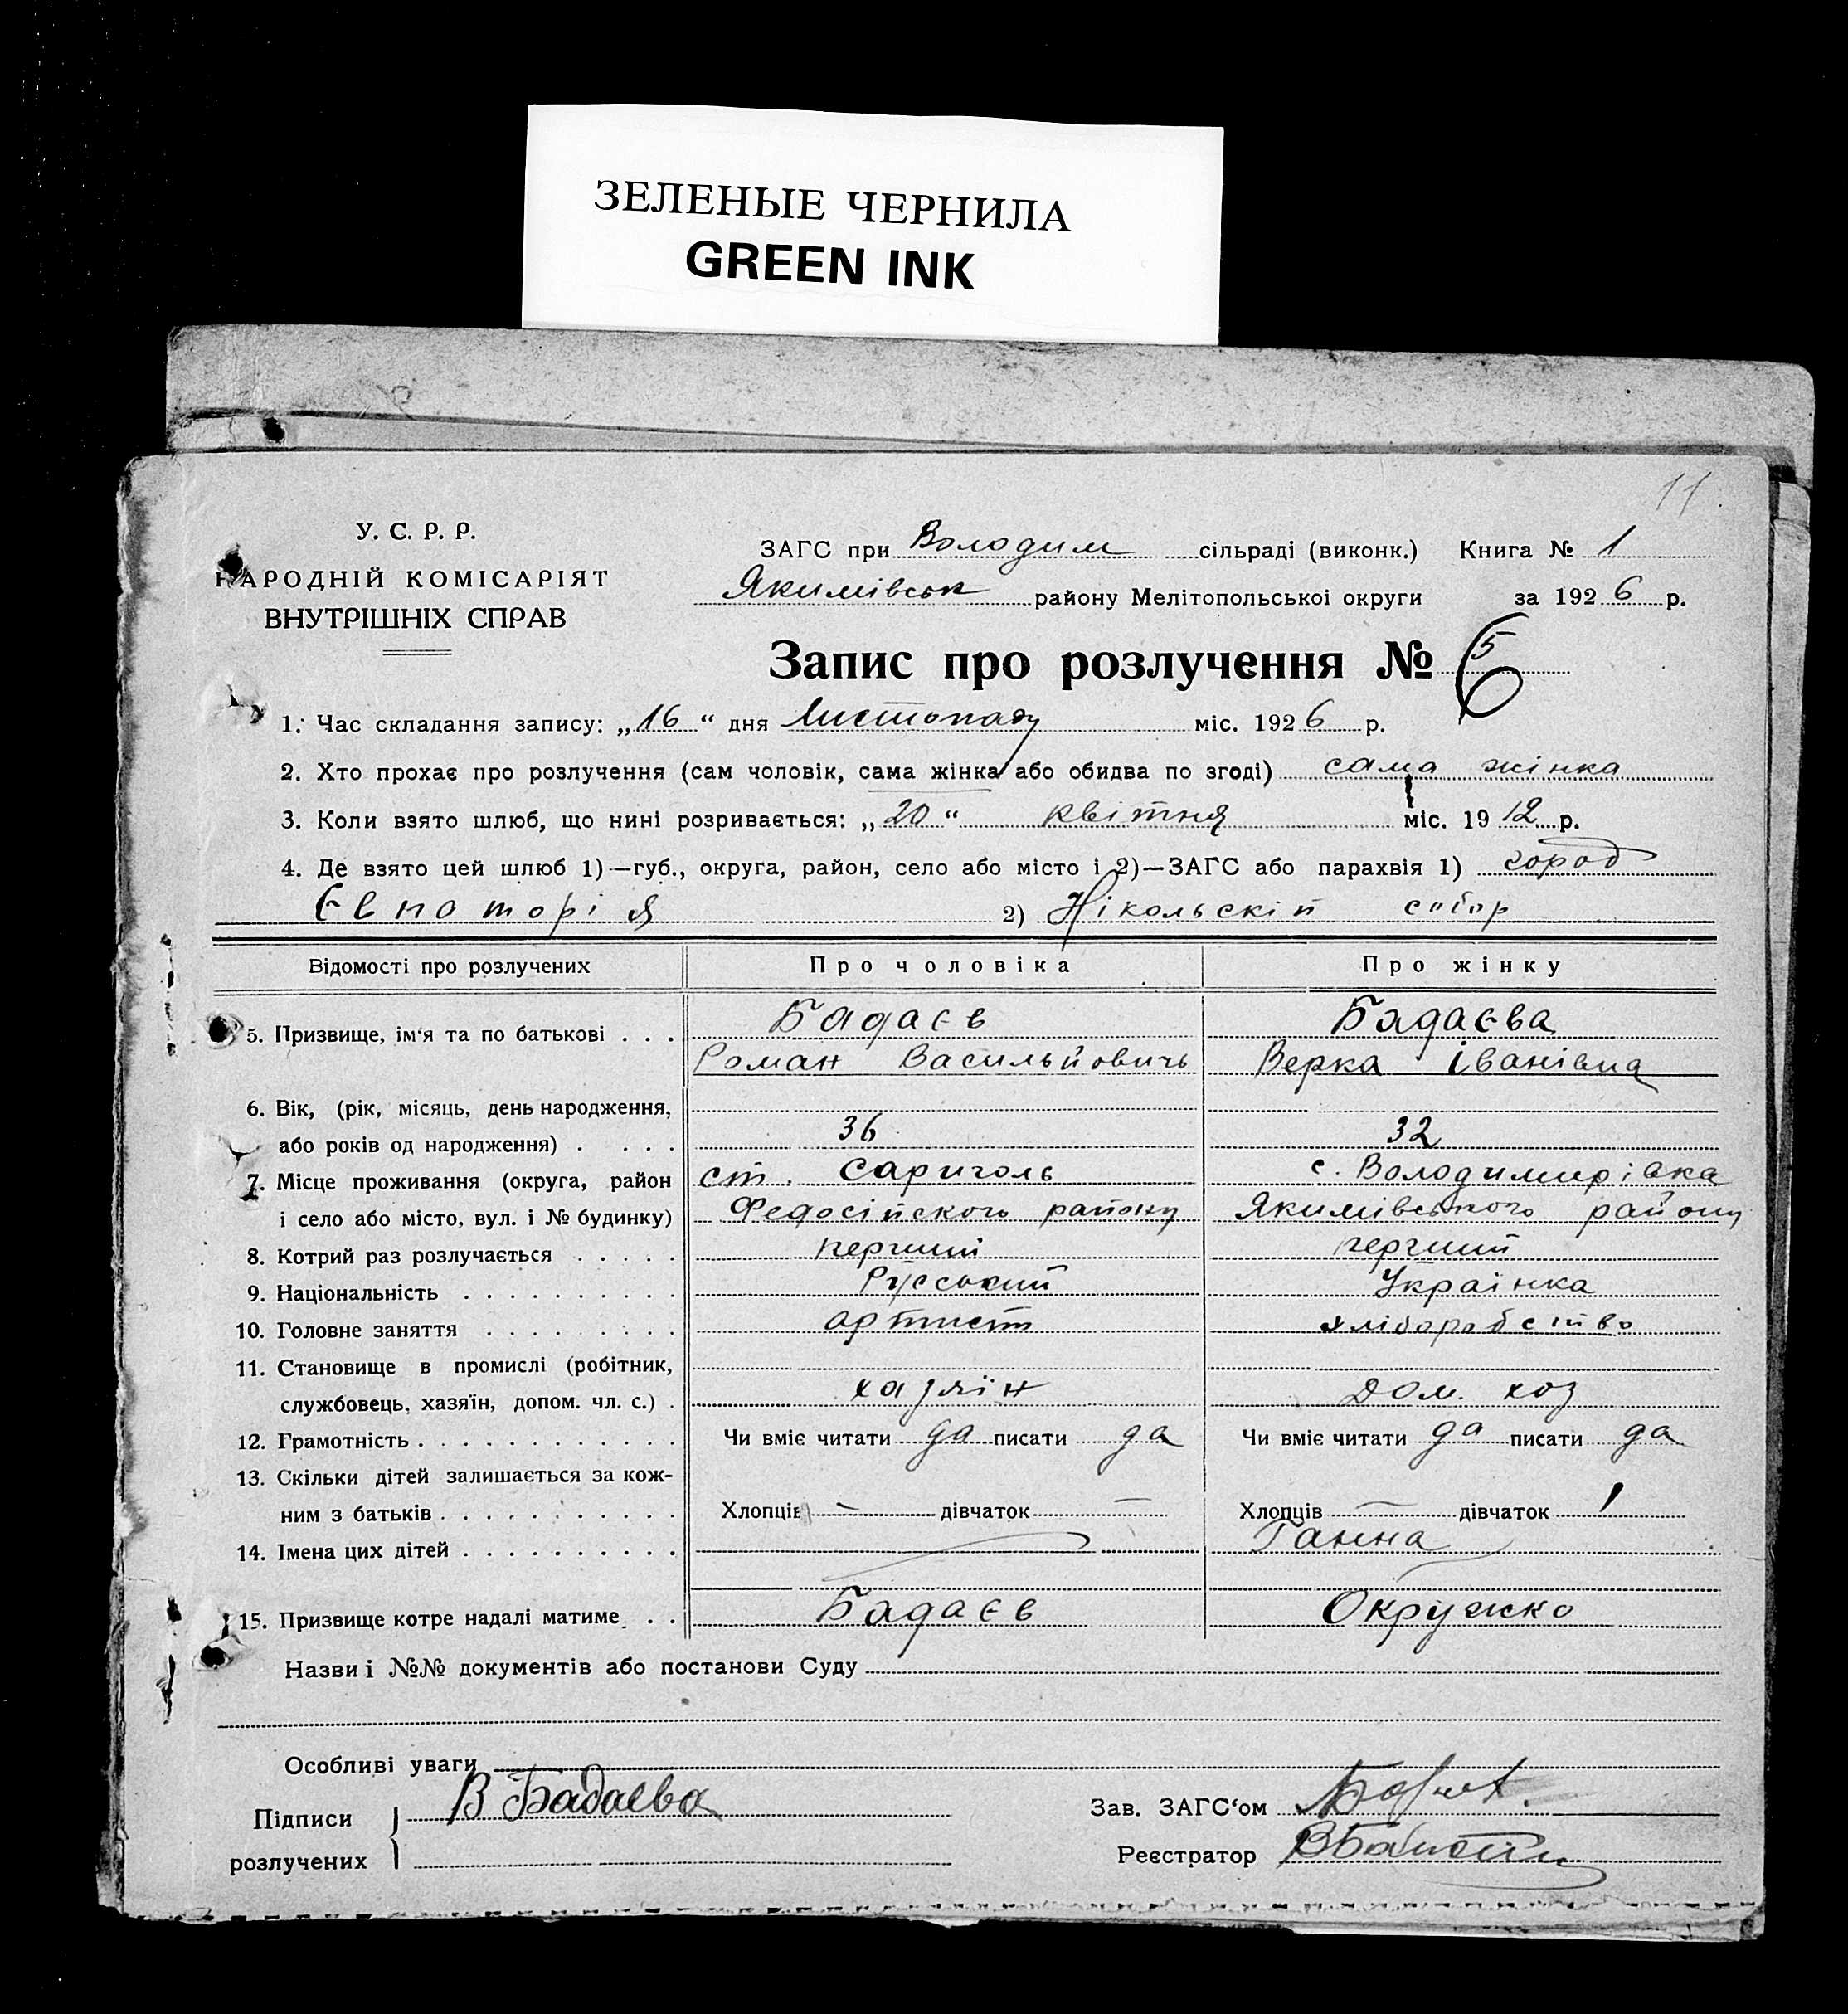 ЗЕЛЕНЫЕ ЧЕРНИЛА
GREEN INK
11
У. С. Р. Р.
НАРОДНІЙ КОМІСАРІЯТ
ВНУТРІШНІХ СПРАВ
ЗАГС при Володим сільраді (виконк.) Книга № 1
Якимівськ району Мелітопольської округи за 1926 р.
Запис про розлучення № 5 6
1. Час складання запису: „16“ дня Листопаду міс. 1926 р.
2. Хто прохає про розлучення (сам чоловік, сама жінка або обидва по згоді) сама жінка
3. Коли взято шлюб, що нині розривається: „20“ квітня міс. 1912 р.
4. Де взято цей шлюб 1)—губ., округа, район, село або місто і 2)—ЗАГС або парахвія 1) город
Євпаторія 2) Нікольскій собор
Відомості про розлучених Про чоловіка Про жінку
5. Призвище, ім‘я та по батькові . . . Бадаєв Бадаєва
Роман Васильйовичь Верка Іванівна
6. Вік, (рік, місяць, день народження,
або років од народження) . . . . 36 32
7. Місце проживання (округа, район ст. Сариголь с. Володимирівка
і село або місто, вул. і № будинку) Федосійского району Якимівського району
8. Котрий раз розлучається . . . . . перший перший
9. Національність . . . . . . . . . . Руський Українка
10. Головне заняття . . . . . . . . . артист хліборобство
11. Становище в промислі (робітник,
службовець, хазяїн, допом. чл. с.) . хазяїн Дом. хоз
12. Грамотність . . . . . . . . . . . . Чи вміє читати да писати да Чи вміє читати да писати да
13. Скільки дітей залишається за кож-
ним з батьків . . . . . . . . . . . Хлопців — дівчаток — Хлопців — дівчаток 1
14. Імена цих дітей . . . . . . . . . . Ганна
15. Призвище котре надалі матиме . . Бадаєв Окружко
Назви і №№ документів або постанови Суду
Особливі уваги
Підписи В Бадаева Зав. ЗАГС‘ом
розлучених Реєстратор